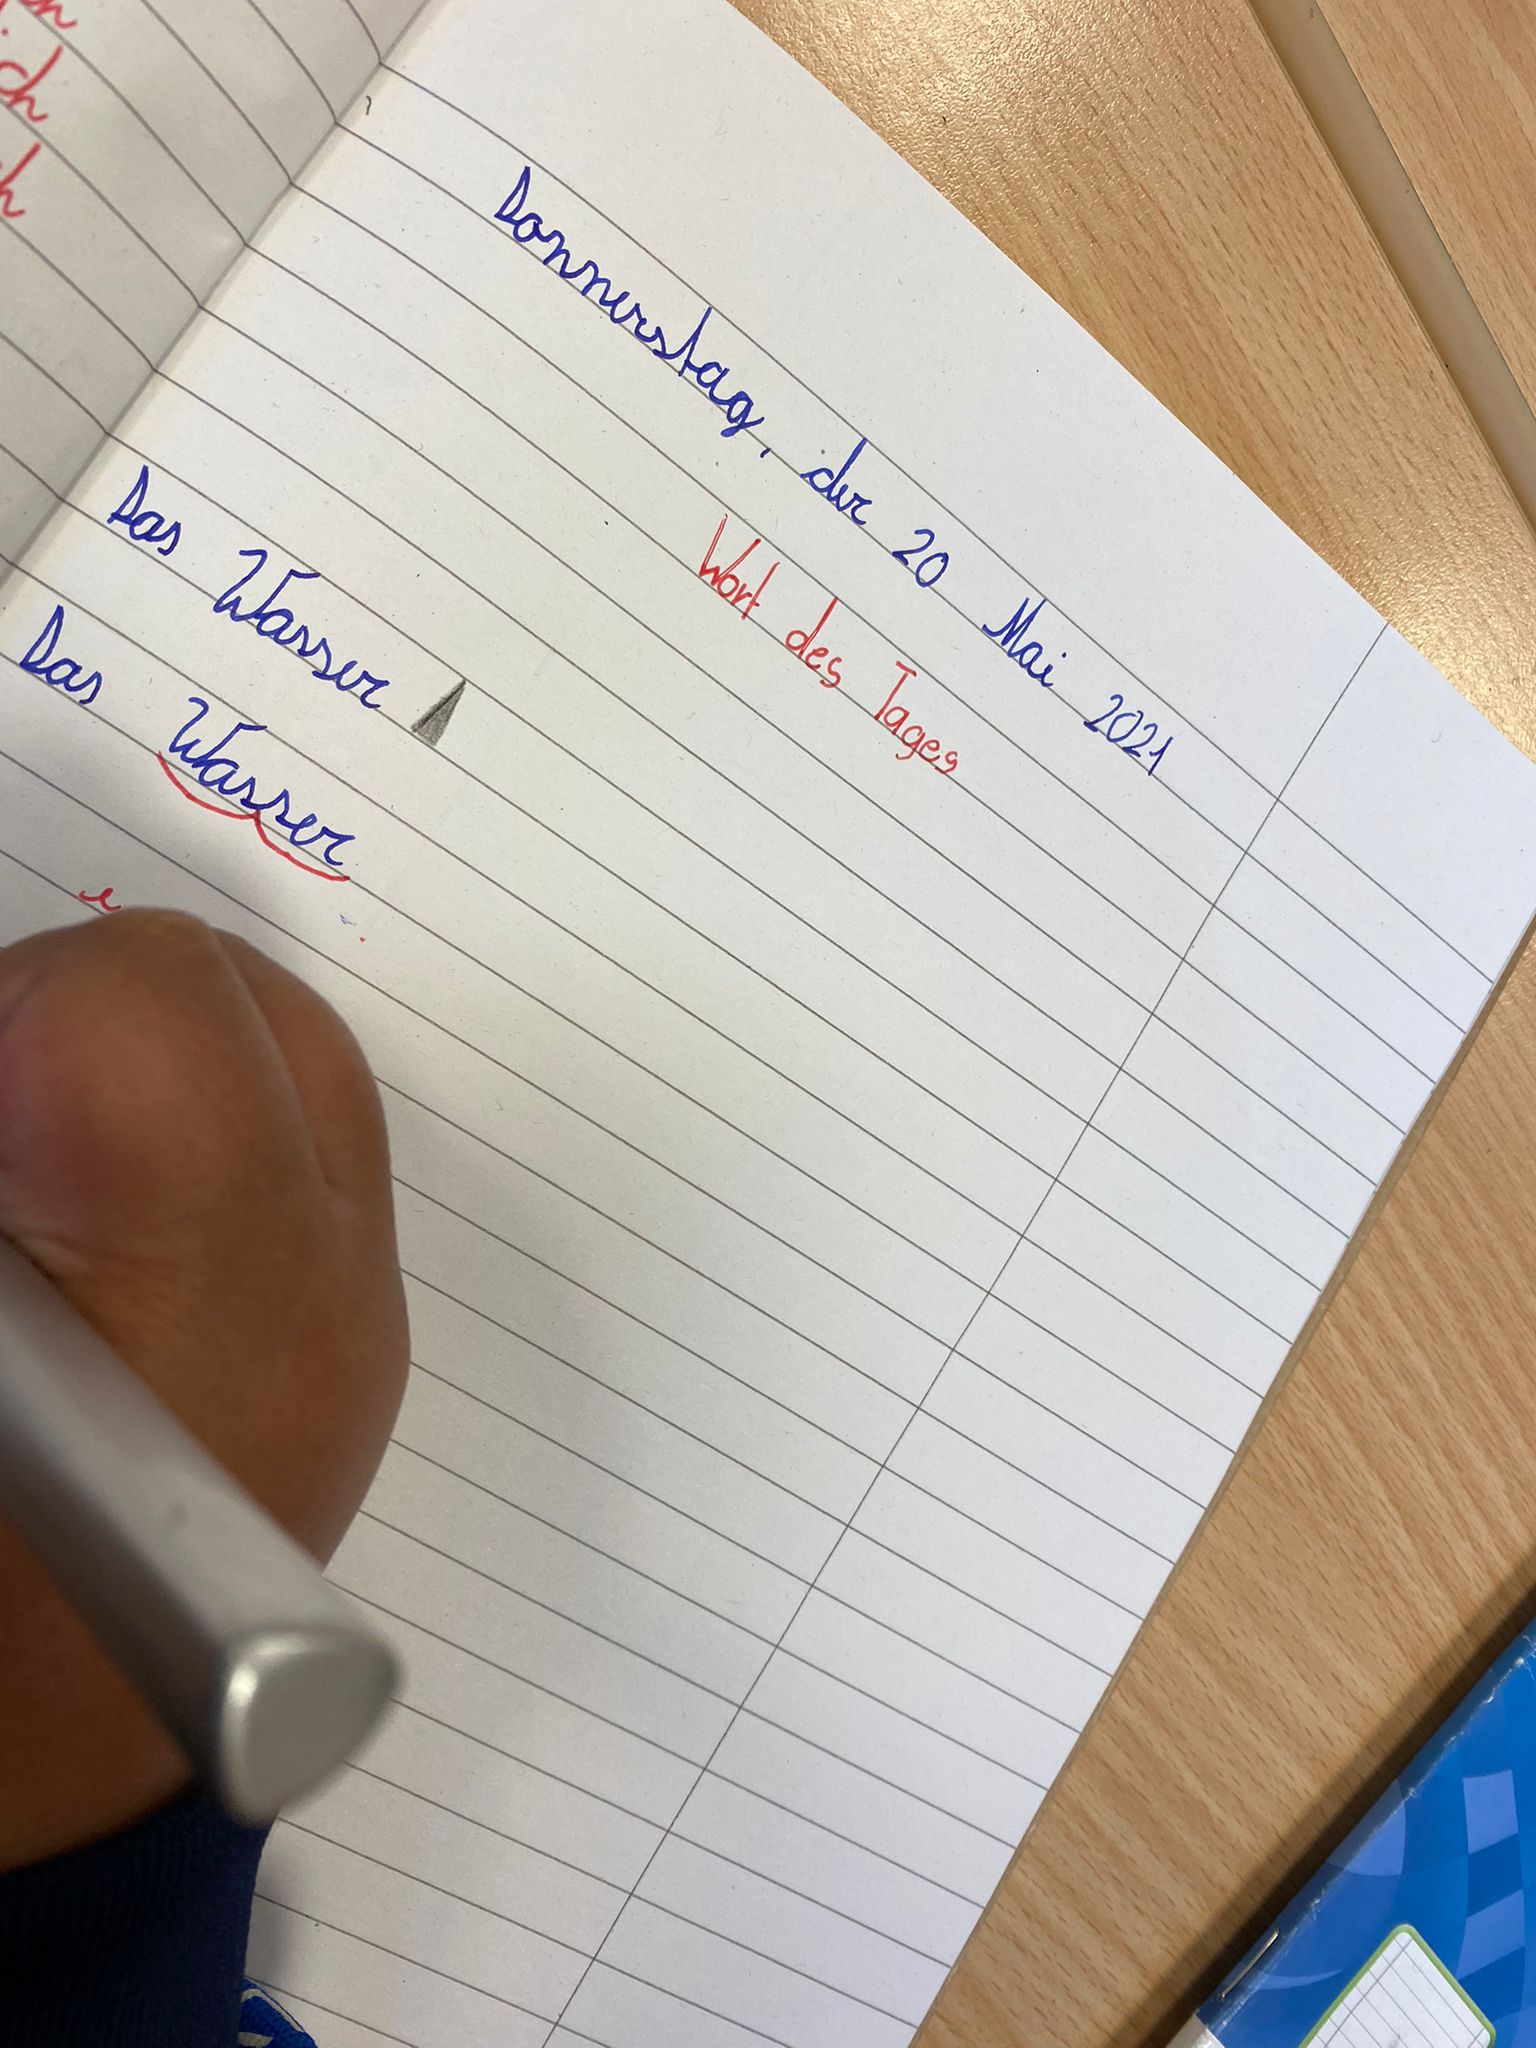 Donnerstag, der 20 Mai 2021
Wort des Tages
Das Wasser
Das Wasser
e